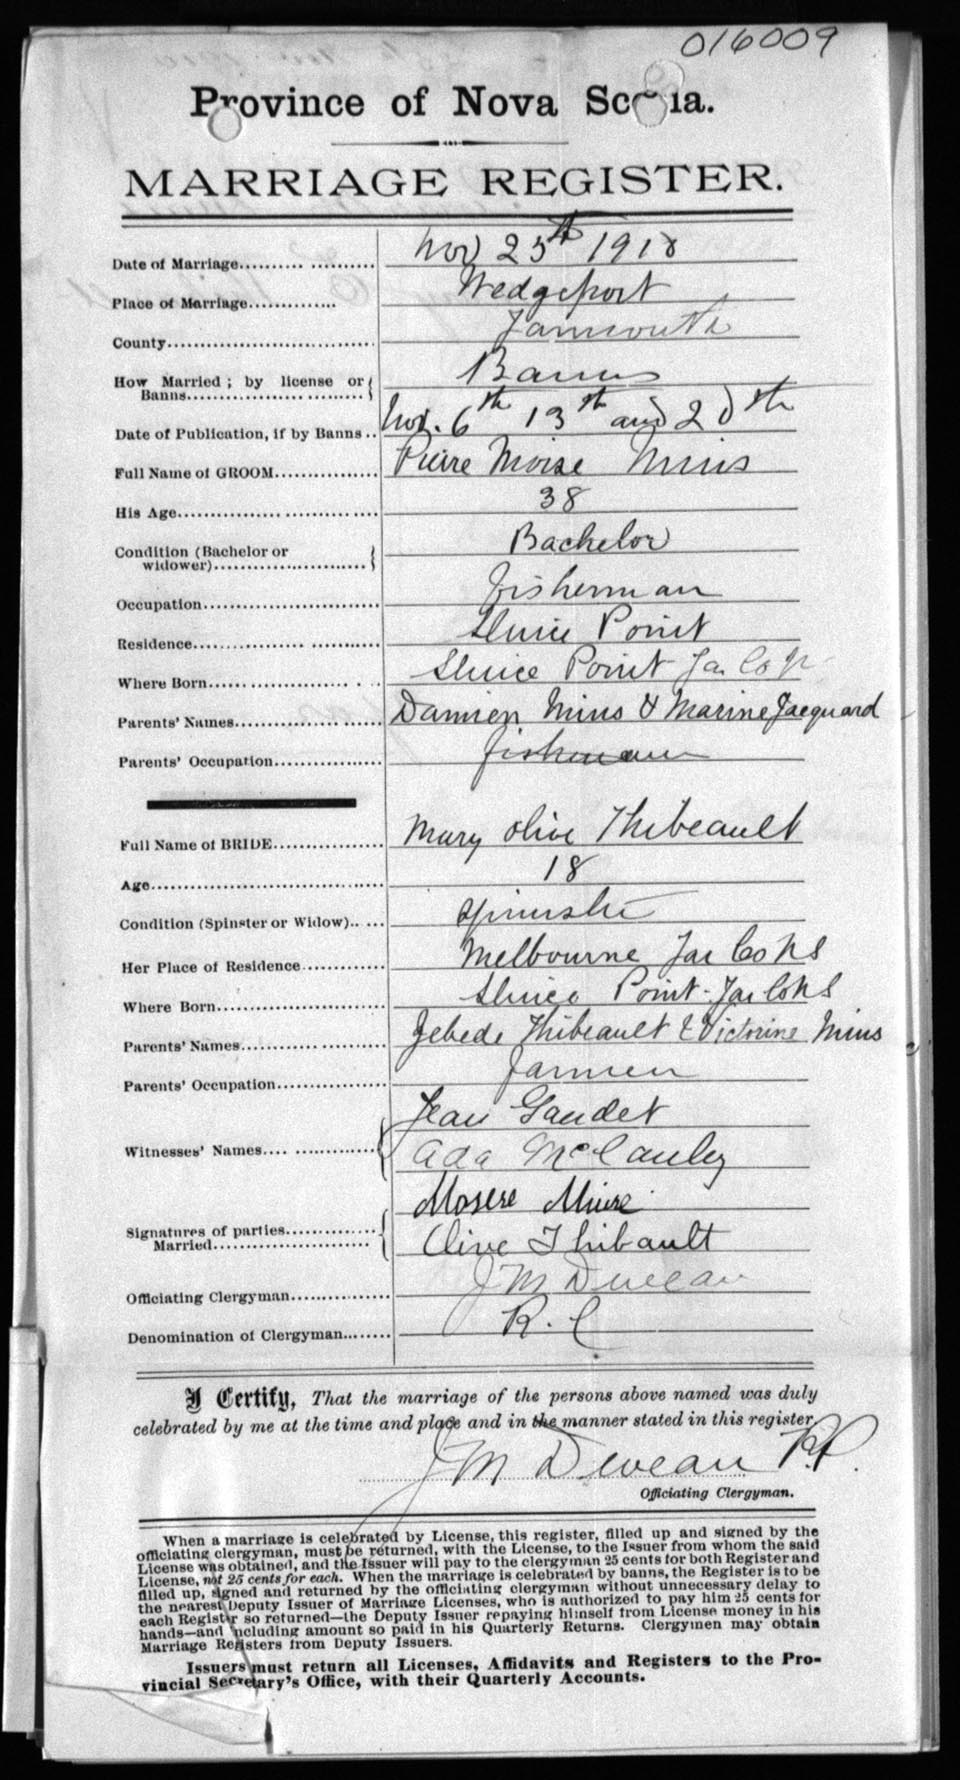 016009
Province of Nova Scotia.
MARRIAGE REGISTER.
Date of Marriage.......... .......... Nov 25th 1910
Place of Marriage.............. Wedgeport
County................................. Yarmouth
How Married ; by license or Banns.................. ......... Banns
Date of Publication, if by Banns .. Nov. 6th 13th and 20th
Full Name of GROOM................ Pierre Moise Mius
His Age................. ............. .... 38
Condition (Bachelor or widower).......................... Bachelor
Occupation............................ Fisherman
Residence.................. .......... Sluice Point
Where Born.................... . .. Sluice Point Yar Co N
Parents' Names.................. ... Damien Mius & Marine Jacquard
Parents' Occupation................. Fisherman
Full Name of BRIDE................. Mary Olive Thibeault
Age................................... 18
Condition (Spinster or Widow).. ... Spinster
Her Place of Residence............. Melbourne Yar Co NS
Where Born.......................... Sluice Point Yar Co NS
Parents' Names............. ........ Zebede Thibeault & Victorine Mius
Parents' Occupation................. Farmer
Witnesses' Names.... ............ Jean Gaudet
Ada McCauley
Signatures of parties............... Married........................ Mosese Miure
Olive Thibault
Officiating Clergyman............... J M Duveau
Denomination of Clergyman........ R. C.
I Certify, That the marriage of the persons above named was duly
celebrated by me at the time and place and in the manner stated in this register
J M Deveau P.P.
Officiating Clergyman.
When a marriage is celebrated by License, this register, filled up and signed by the
officiating clergyman, must be returned, with the License, to the Issuer from whom the said
License was obtained, and the Issuer will pay to the clergyman 25 cents for both Register and
License, not 25 cents for each. When the marriage is celebrated by banns, the Register is to be
filled up, signed and returned by the officiating clergyman without unnecessary delay to
the nearest Deputy Issuer of Marriage Licenses, who is authorized to pay him 25 cents for
each Register so returned—the Deputy Issuer repaying himself from License money in his
hands—and including amount so paid in his Quarterly Returns. Clergymen may obtain
Marriage Registers from Deputy Issuers.
Issuers must return all Licenses, Affidavits and Registers to the Pro-
vincial Secretary's Office, with their Quarterly Accounts.